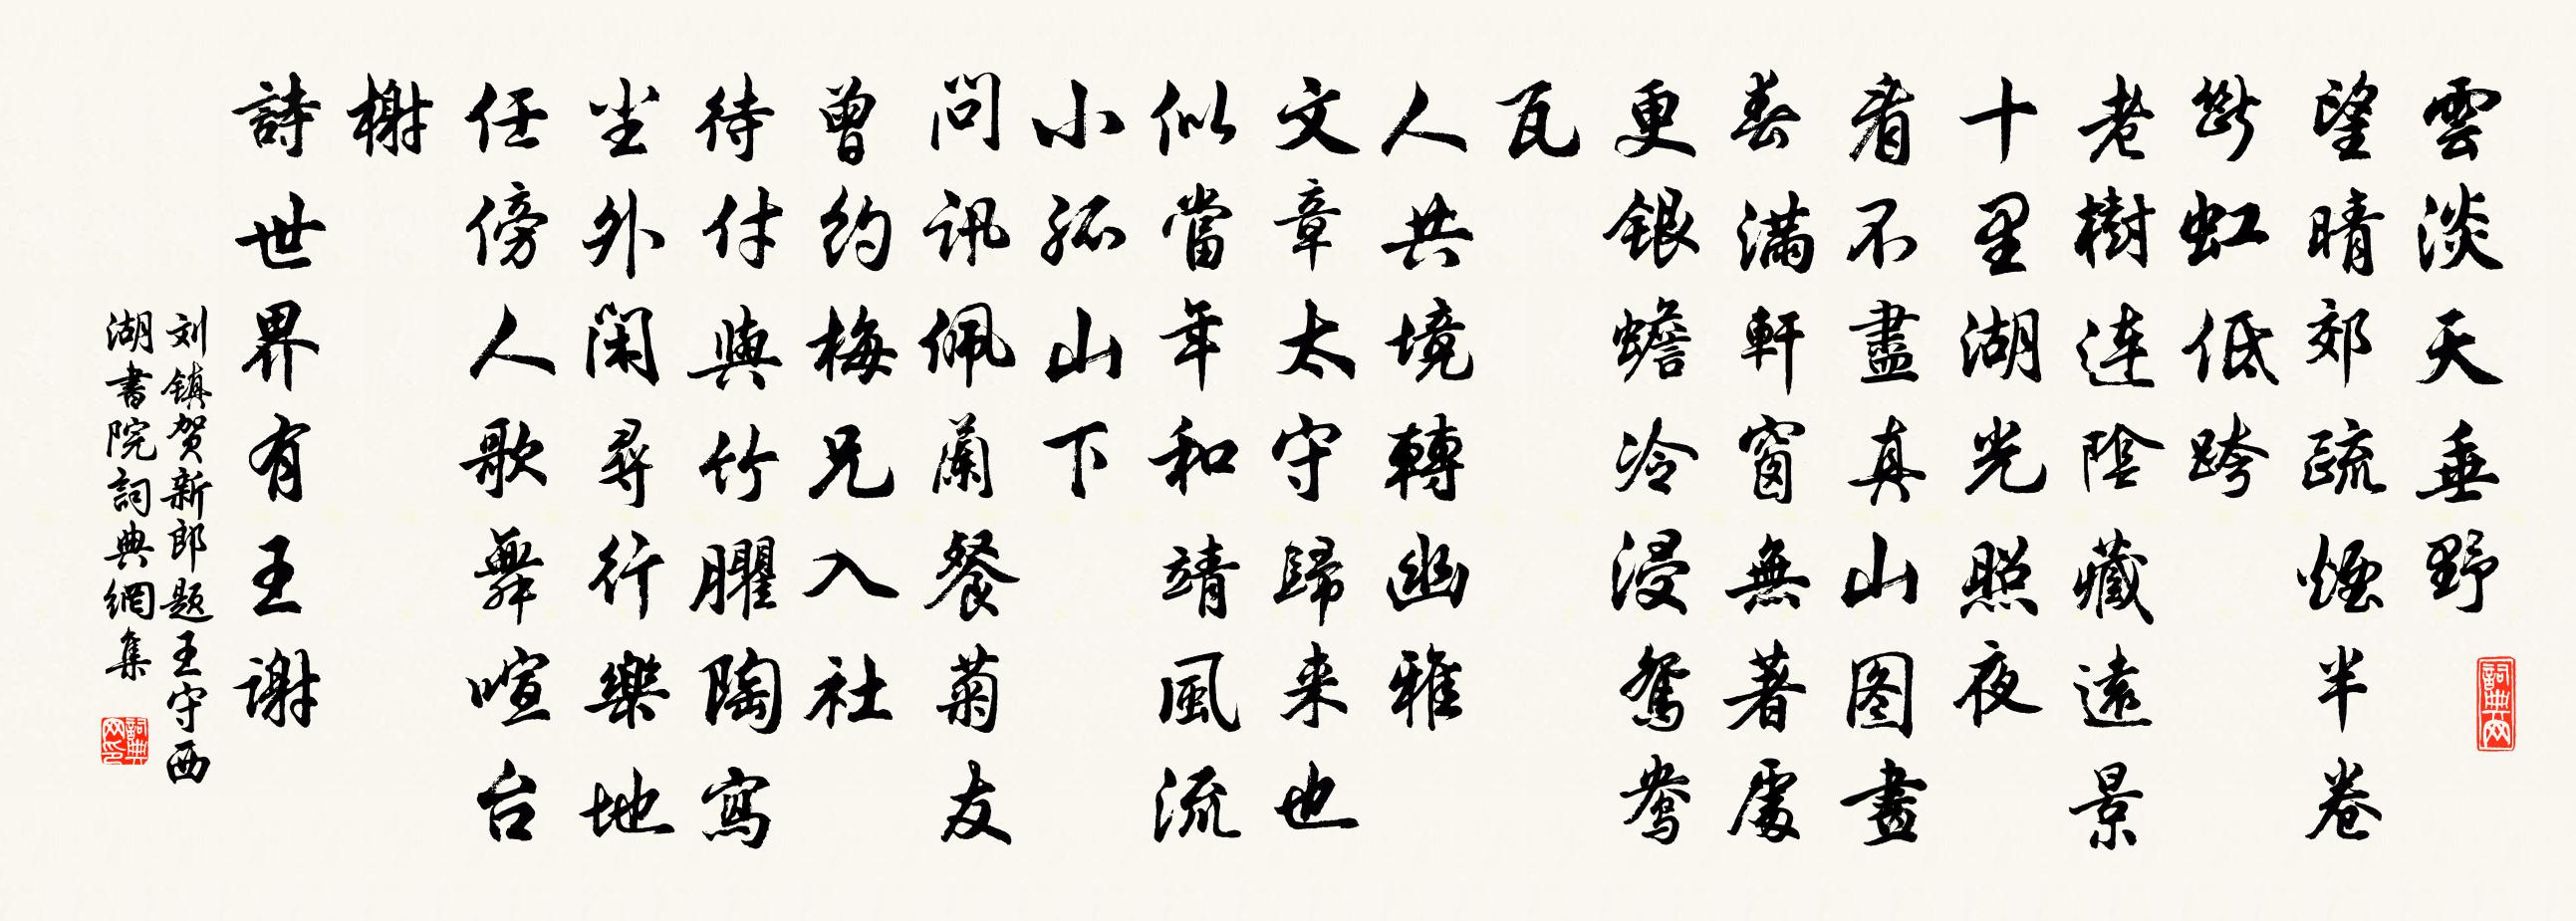 雲淡天垂野
望晴郊疏煙半卷
斷虹低跨
老樹連陰藏遠景
十里湖光照夜
看不盡真山图畫
春滿軒窗無著處
更銀蟾冷浸鴛鴦
瓦
人共境轉幽雅
文章太守歸来也
似當年和靖風流
小孤山下
問訊佩蘭餐菊友
曾約梅兄入社
待付與竹臞陶寫
坐外閑尋行樂地
任傍人歌舞喧台
榭
詩世界有王谢
刘镇贺新郎题王守西
湖書院詞典網集
詞典网
詞典网印